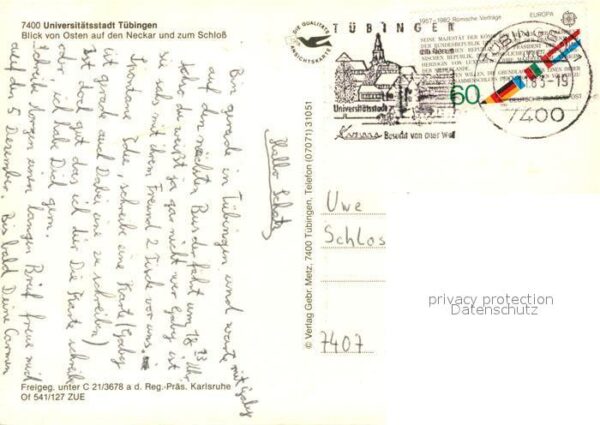 7400 Universitätsstadt Tübingen
Blick von Osten auf den Neckar und zum Schloß
Hallo Schatz
Bin grade in Tübingen und warte mit Gaby
auf den nächsten Bus der fährt um 18 33 Uhr
so, du weißt ja gar nicht wer Gaby ist
sie saß mit ihrem Freund 2 Tische vor uns.
Spontane Idee, schreibe eine Karte (Gaby
ist grade auch dabei eine zu schreiben)
Ist doch gut das ich hier Die Karte schreibe
oder, ich hab Dich gern.
Schreibe morgen einen langen Brief freue mich
auf den 5 Dezember. Bis bald Deine Carmen
Freigeg. unter C 21/3678 a d. Reg.-Präs. Karlsruhe
Of 541/127 ZUE
© Verlag Gebr. Metz, 7400 Tübingen, Telefon (07071) 31051
DIE QUALITÄTS
ANSICHTSKARTE
TÜBINGEN
am Neckar
Universitätsstadt
Besucht von aller Welt
1957-1982 Römische Verträge
EUROPA
60
DEUTSCHE BUNDESPOST
TÜBINGEN
83-19
7400
Uwe
Schlos
7407
privacy protection
Datenschutz